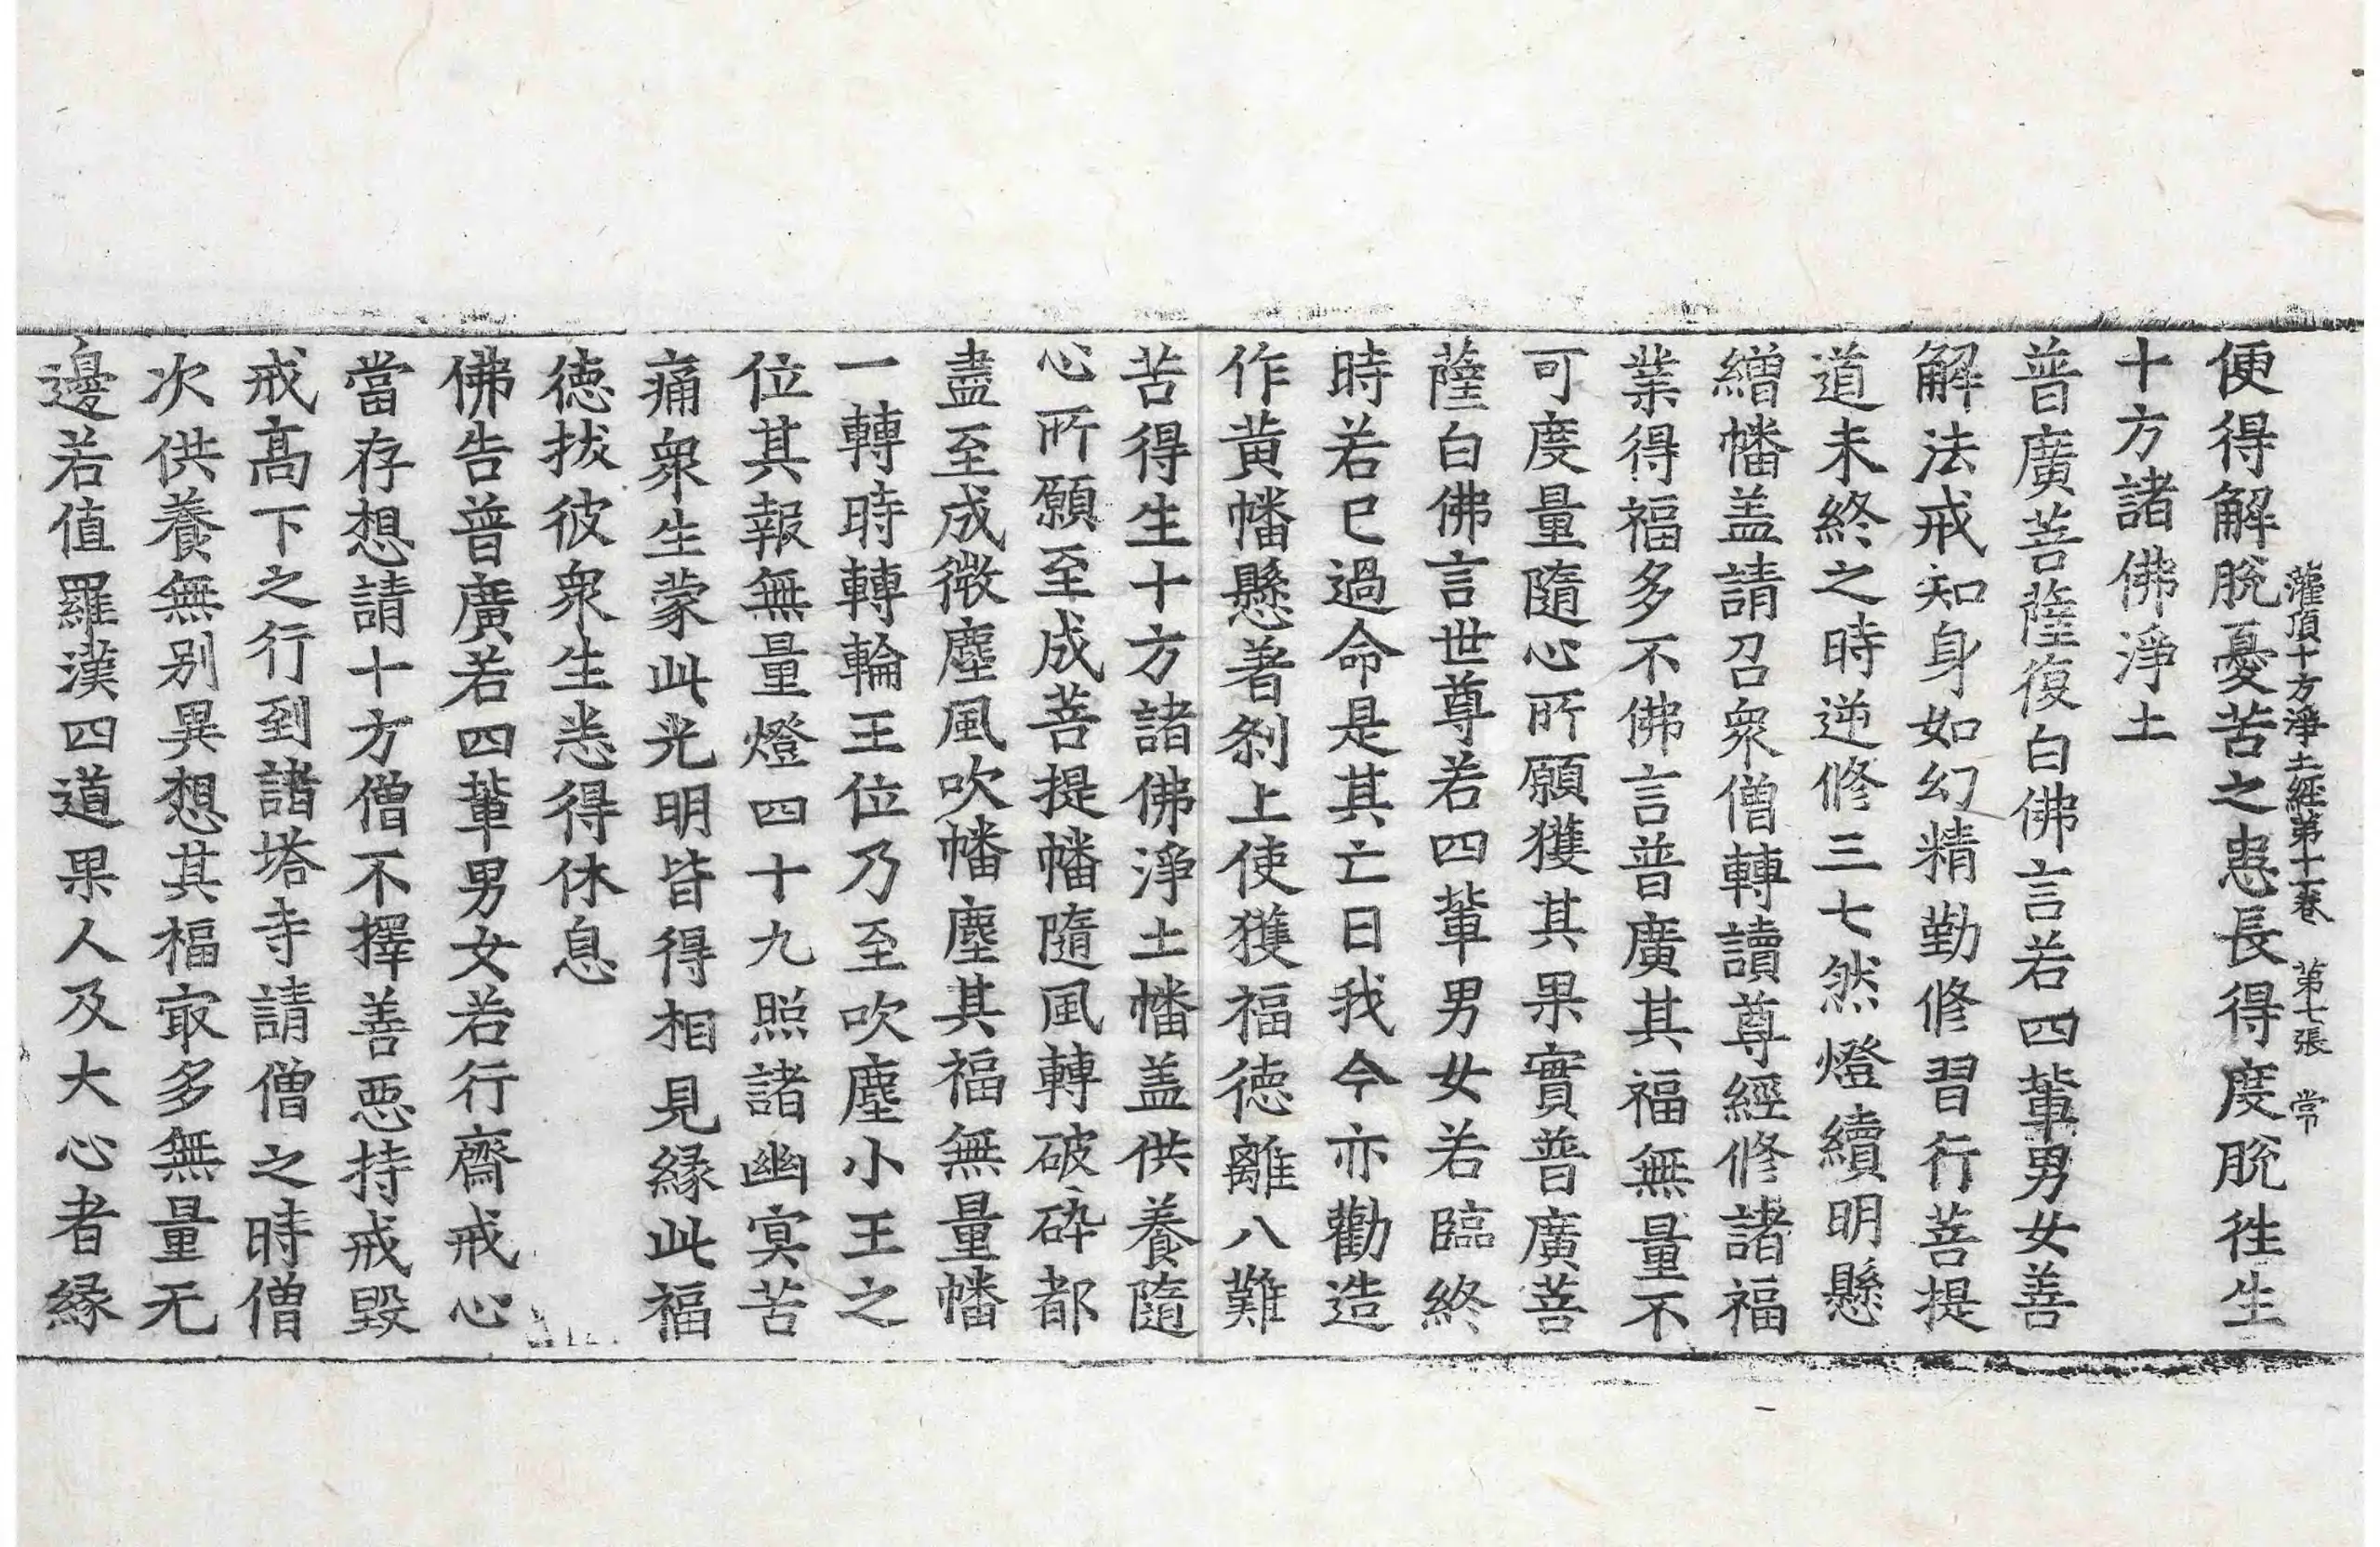 灌頂十方淨土經第十一卷 第七張 常
便得解脫憂苦之患長得度脫徃生
十方諸佛淨土
普廣菩薩復白佛言若四軰男女善
解法戒知身如幻精勤修習行菩提
道未終之時逆修三七然燈續明懸
繒幡盖請召衆僧轉讀尊經修諸福
業得福多不佛言普廣其福無量不
可度量隨心所願獲其果實普廣菩
薩白佛言世尊若四軰男女若臨終
時若巳過命是其亡日我今亦勸造
作黃幡懸著刹上使獲福德離八難
苦得生十方諸佛淨土幡盖供養隨
心所願至成菩提幡隨風轉破碎都
盡至成微塵風吹幡塵其福無量幡
一轉時轉輪王位乃至吹塵小王之
位其報無量燈四十九照諸幽冥苦
痛衆生蒙此光明皆得相見緣此福
德拔彼衆生悉得休息
佛告普廣若四軰男女若行齋戒心
當存想請十方僧不擇善惡持戒毀
戒高下之行到諸塔寺請僧之時僧
次供養無別異想其福㝡多無量无
邊若值羅漢四道果人及大心者緣